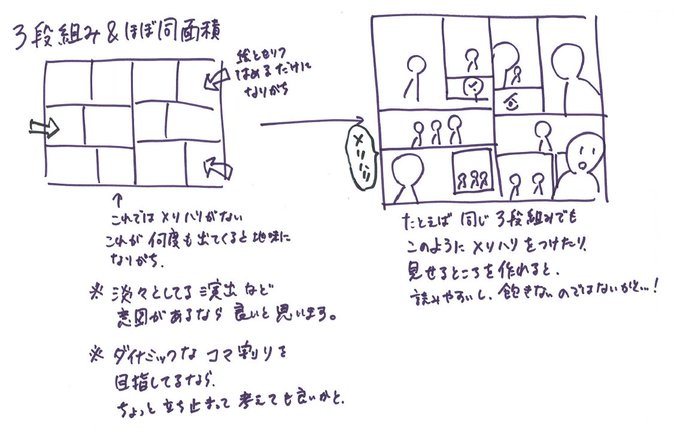 3段組み&ほぼ同面積
絵とセリフ
はめるだけに
なりがち
↑
これではメリハリがない
これが何度も出てくると地味に
なりがち.
※ 淡々としてる演出など
意図があるなら 良いと思います。
※ ダイナミックな コマ割りを
目指してるなら、
ちょっと立ち止まって 考えても良いかと.
メリハリ
たとえば 同じ 3段組みでも
このように メリハリ をつけたり、
見せるところを作れると、
読みやすいし、飽きないのではないかと…!